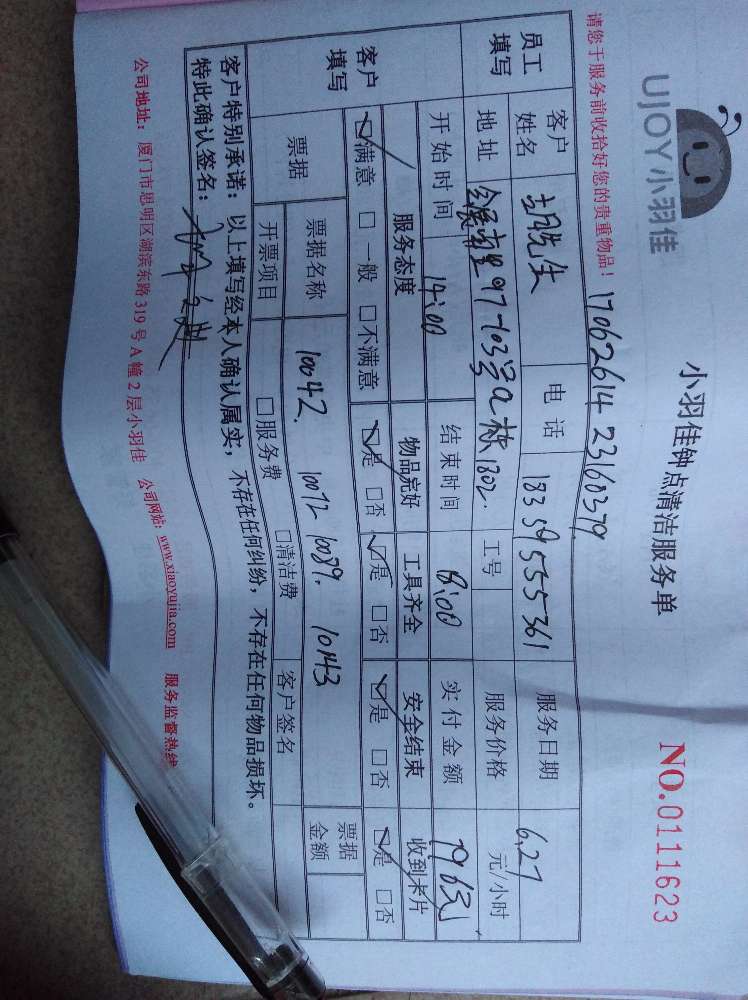 UJOY小羽佳
小羽佳钟点清洁服务单
NO.0111623
请您于服务前收拾好您的贵重物品!
1706261423168379
员工填写
客户姓名 胡先生 电话 18359555361 服务日期 6.27
地址 97-103号a栋1802. 工号 服务价格 元/小时
开始时间 14:00 结束时间 18:00 实付金额 196元
客户填写
服务态度 物品完好 工具齐全 安全结束 收到卡片
☑满意 □一般 □不满意 ☑是 □否 ☑是 □否 ☑是 □否 ☑是 □否
票据 票据名称 10042. 10072 10089. 10143 票据金额
开票项目 □服务费 □清洁费 客户签名
客户特别承诺:以上填写经本人确认属实,不存在任何纠纷,不存在任何物品损坏。
特此确认签名:
公司地址:厦门市思明区湖滨东路319号A幢2层小羽佳 公司网站:www.xiaoyujia.com 服务监督热线